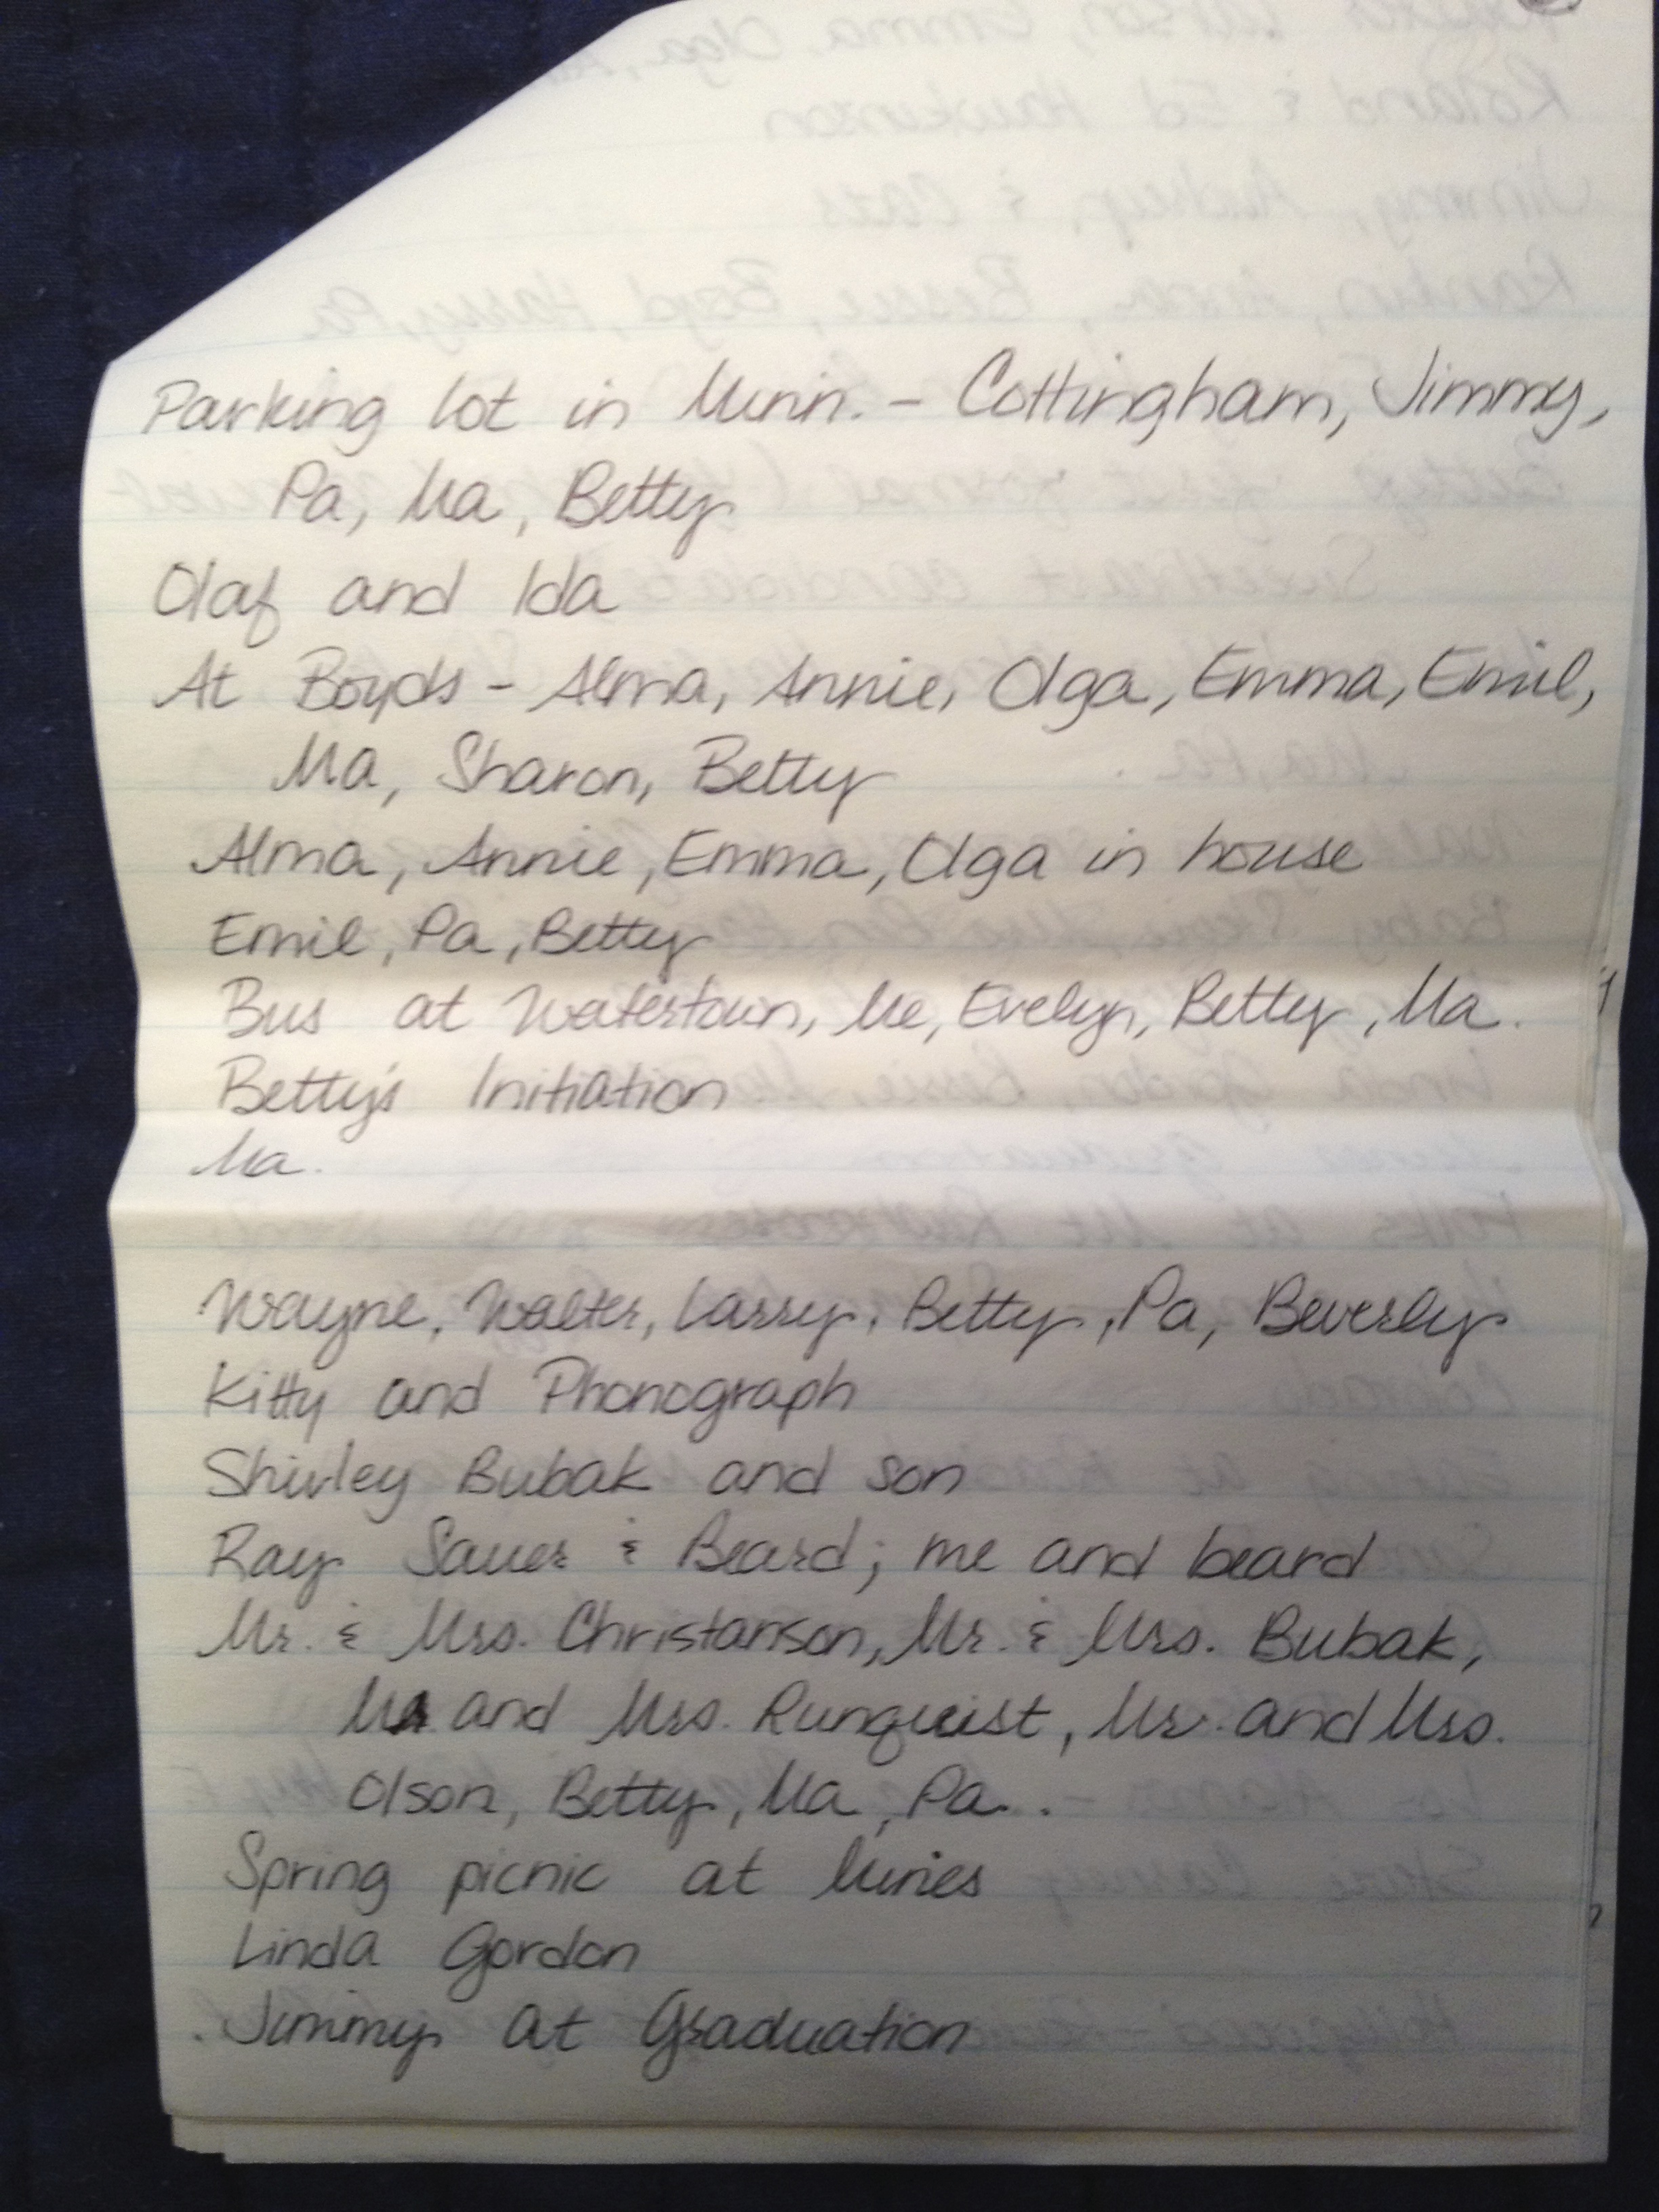 Parking lot in Minn. - Cottingham, Jimmy,
Pa, Ma, Betty
Olaf and Ida
At Boyds - Alma, Annie, Olga, Emma, Emil,
Ma, Sharon, Betty
Alma, Annie, Emma, Olga in house
Emil, Pa, Betty
Bus at Watertown, Me, Evelyn, Betty, Ma.
Betty's Initiation
Ma.
Wayne, Walter, Larry, Betty, Pa, Beverly
Kitty and Phonograph
Shirley Bubak and son
Ray Sauer & Beard; me and beard
Mr. & Mrs. Christanson, Mr. & Mrs. Bubak,
and Mrs. Runquist, Mr. and Mrs.
Olson, Betty, Ma, Pa.
Spring picnic at
Linda Gordon
Jimmy at Graduation